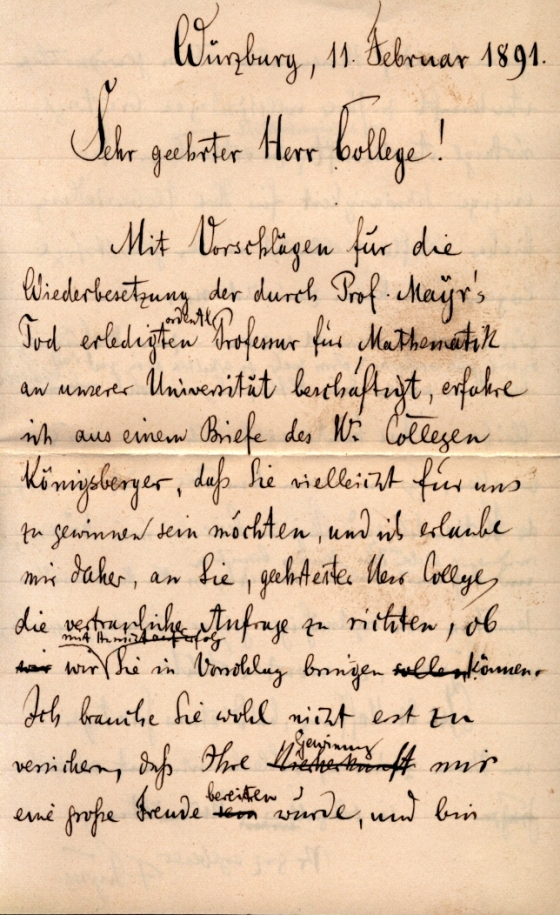 Würzburg, 11. Februar 1891.
Sehr geehrter Herr College!
Mit Vorschlägen für die
Wiederbesetzung der durch Prof. Mayr's
ordentl.
Tod erledigten Professur für Mathematik
an unserer Universität beschäftigt, erfahre
ich aus einem Briefe des H. Collegen
Königsberger, daß Sie vielleicht für uns
zu gewinnen sein möchten, und ich erlaube
mir daher, an Sie, geehrtester Herr College,
die vertrauliche Anfrage zu richten, ob
mit Aussicht auf Erfolg
wir wir Sie in Vorschlag bringen sollen können.
Ich brauche Sie wohl nicht erst zu
Gewinnung
versichern, daß Ihre mir
bereiten
eine große Freude sein würde, und bin